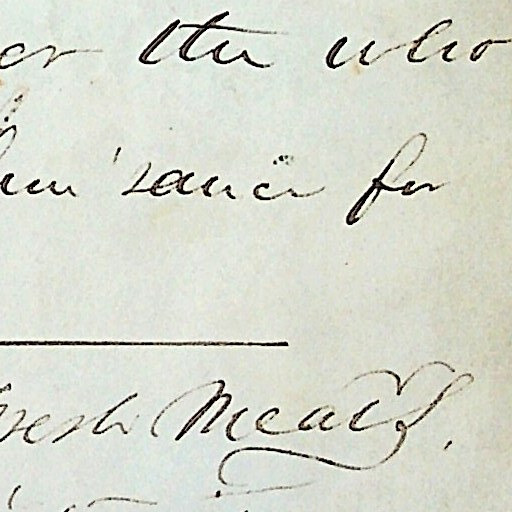 er the who
sauce for
resh Meats.